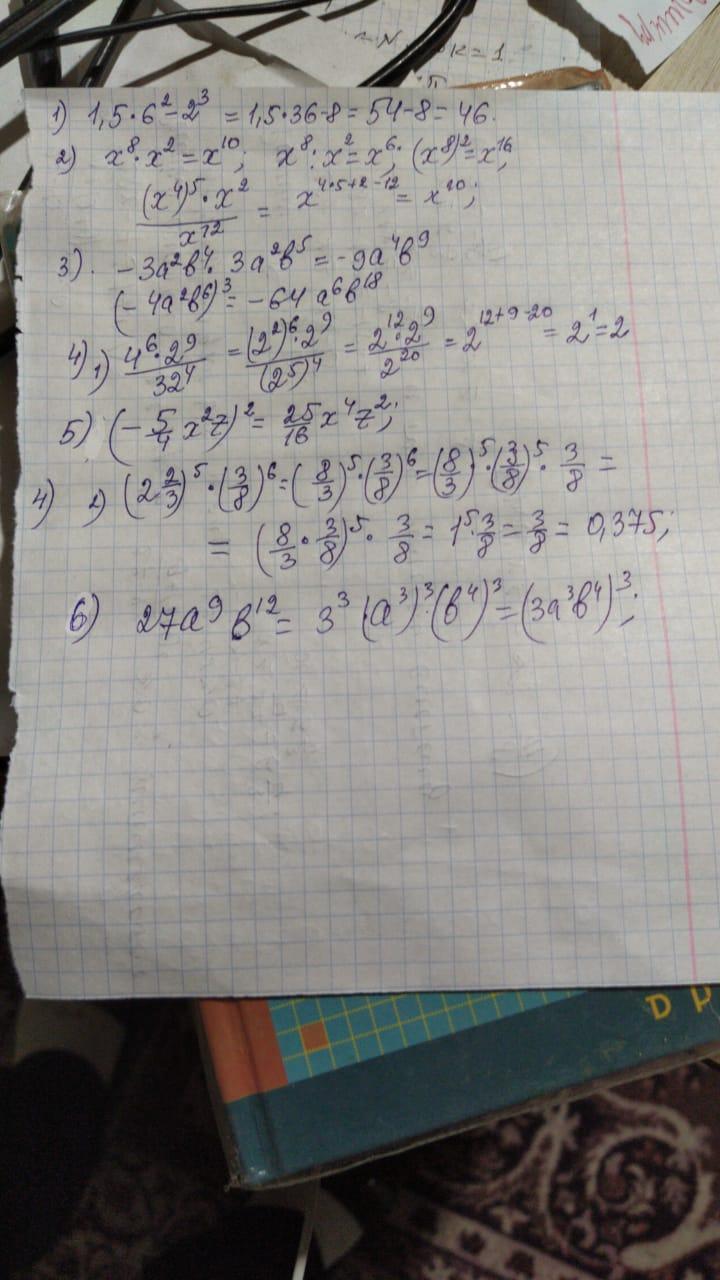 = N к = 1
п
1) 1,5·6² - 2³ = 1,5·36-8 = 54-8 = 46.
2) x⁸·x² = x¹⁰; x⁸:x² = x⁶; (x⁸)² = x¹⁶;
(x⁴)⁵·x² / x¹² = x⁴·⁵⁺²⁻¹² = x¹⁰;
3). -3a²b⁴·3a²b⁵ = -9a⁴b⁹
(-4a²b⁶)³ = -64a⁶b¹⁸
4) 1) 4⁶·2⁹ / 32⁴ = (2²)⁶·2⁹ / (2⁵)⁴ = 2¹²·2⁹ / 2²⁰ = 2¹²⁺⁹⁻²⁰ = 2¹ = 2
5) (-5/4 x²z)² = 25/16 x⁴z²;
4) 2) (2 2/3)⁵·(3/8)⁶ = (8/3)⁵·(3/8)⁶ = (8/3)⁵·(3/8)⁵·3/8 =
= (8/3·3/8)⁵·3/8 = 1⁵·3/8 = 3/8 = 0,375;
6) 27a⁹b¹² = 3³·(a³)³·(b⁴)³ = (3a³b⁴)³;